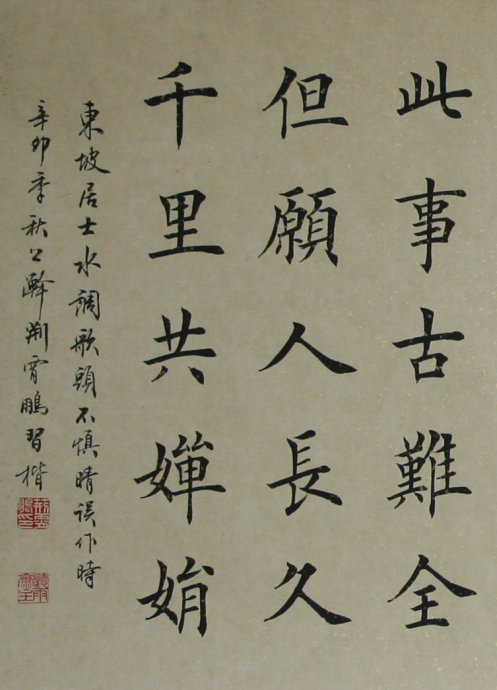 此事古難全
但願人長久
千里共嬋娟
東坡居士水調歌頭不慎晴误作時
辛卯季秋荆霄鵬習楷